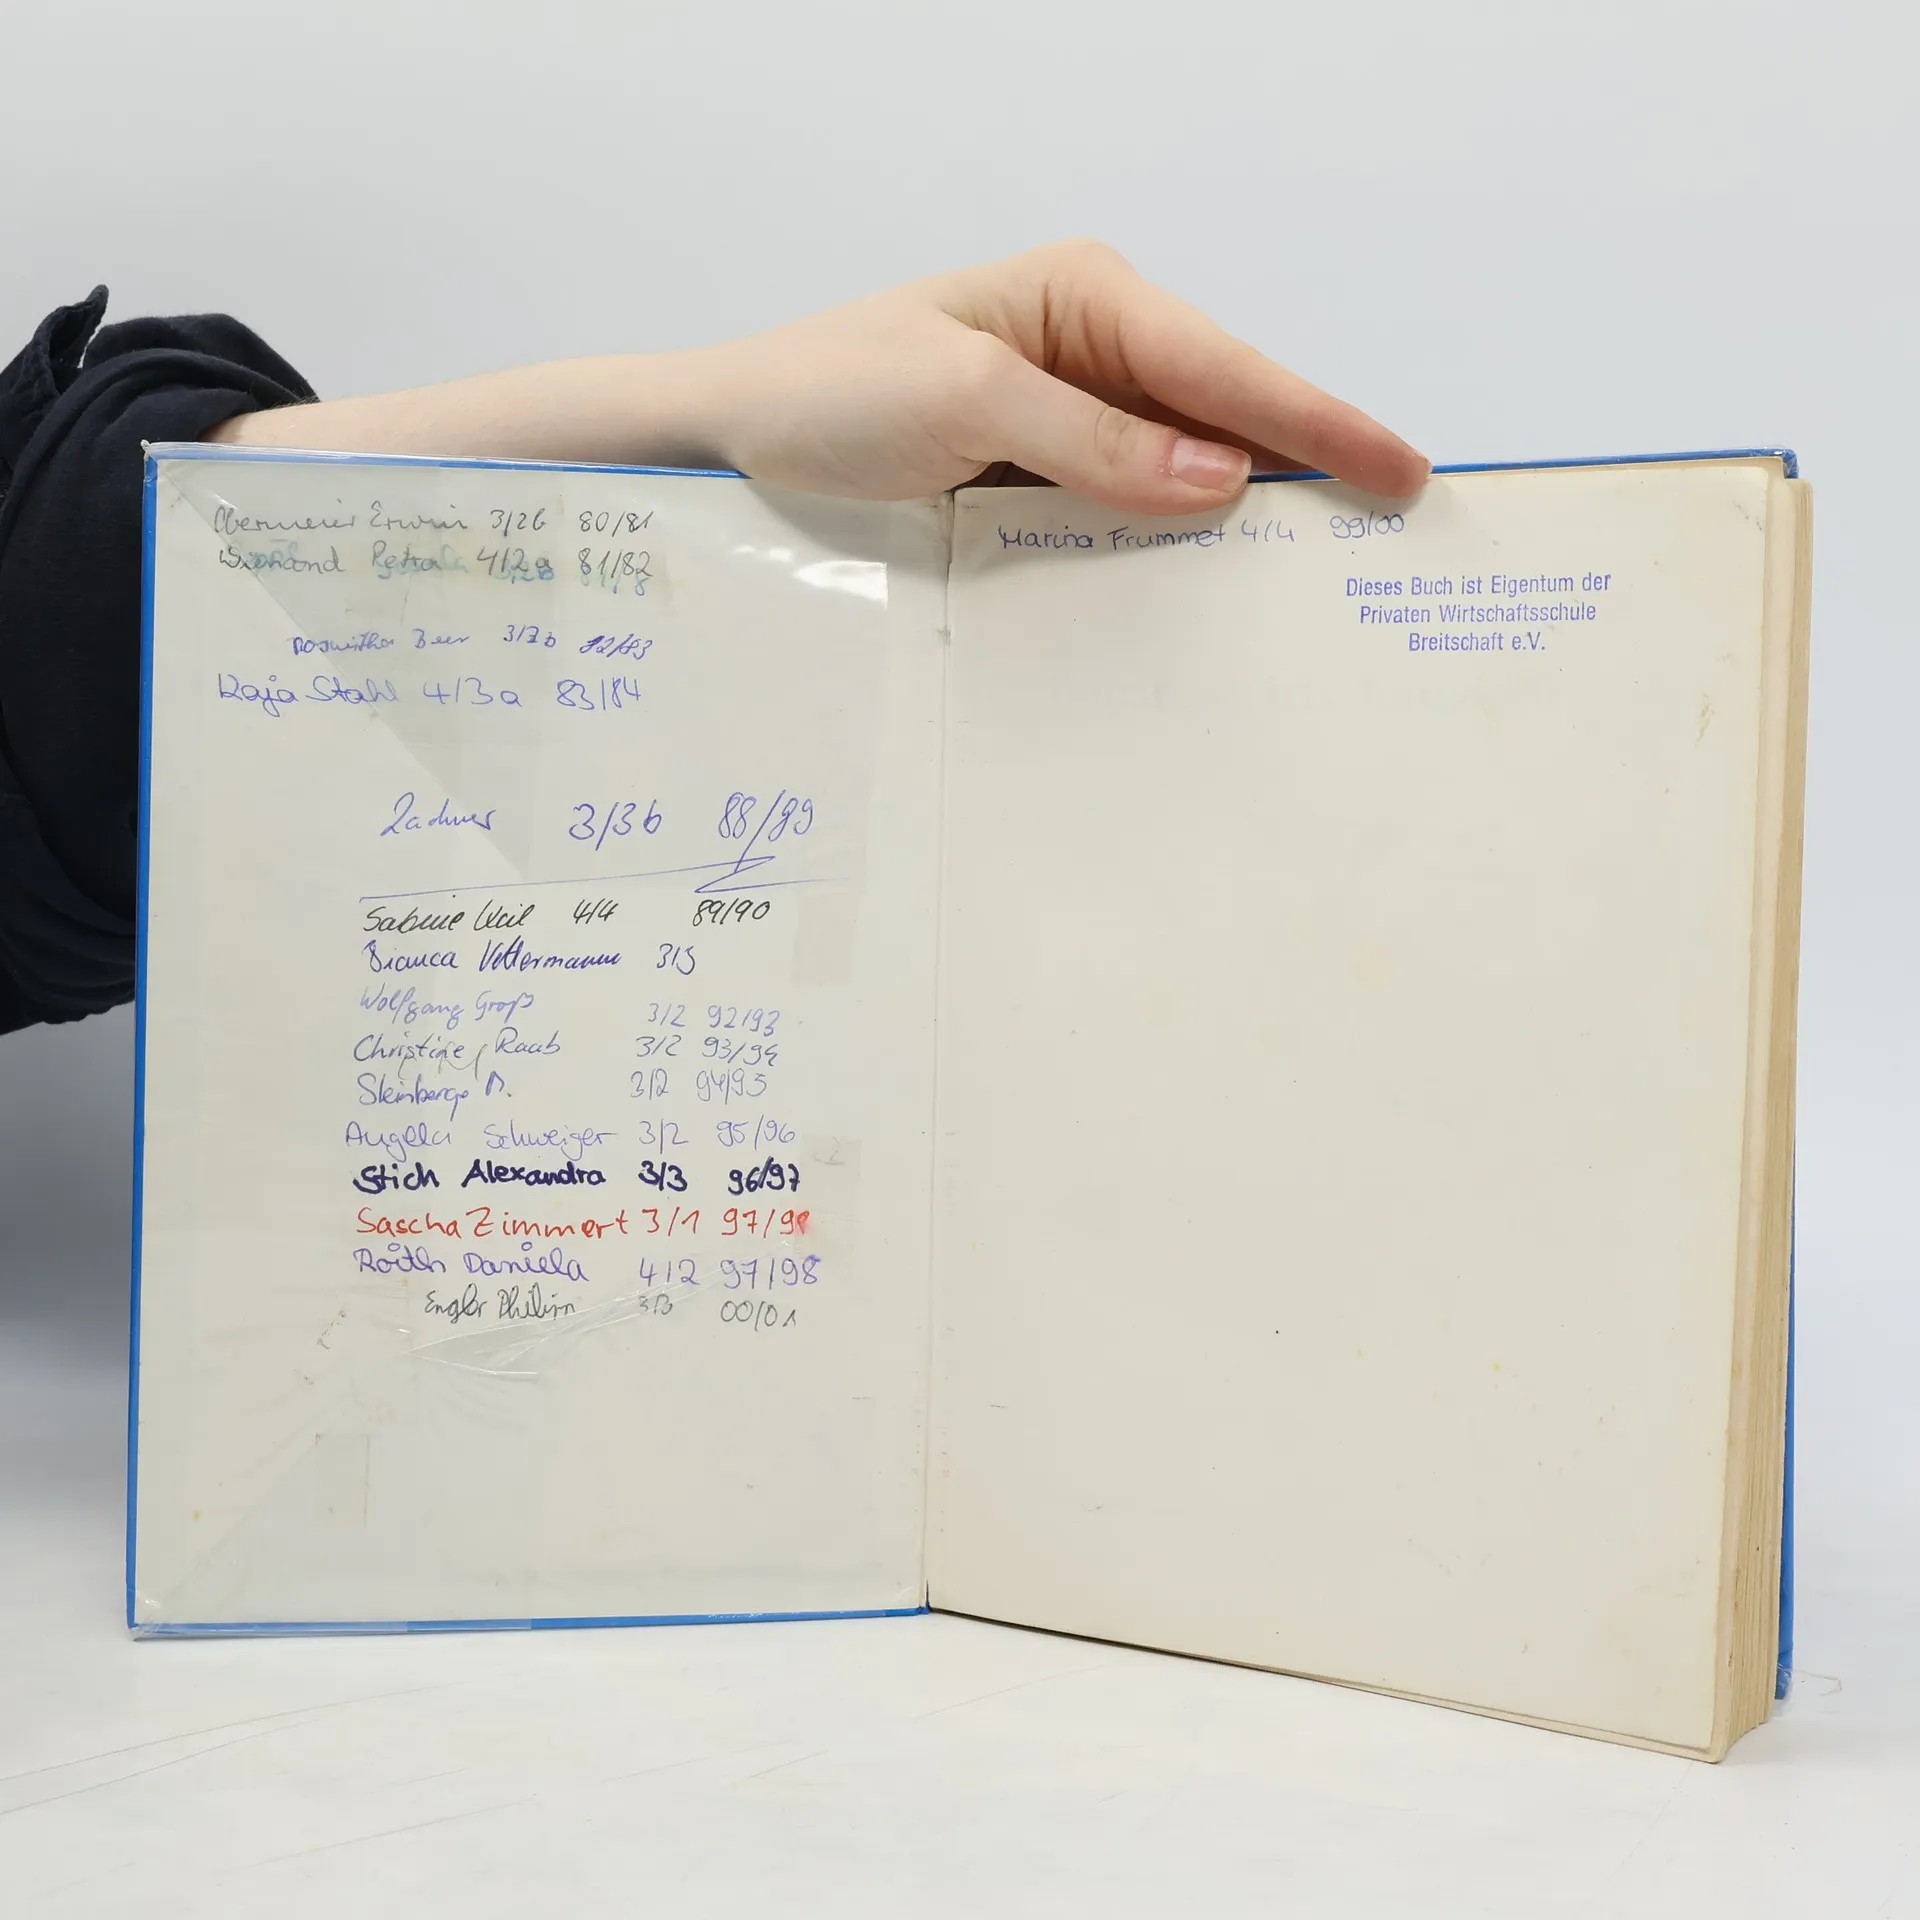 Obermeier Erwin 3/2b 80/81
Petra 4/2a 81/82
Roswitha Beer 3/3b 82/83
Kaja Stahl 4/3a 83/84
3/3b 88/89
Sabine Keil 4/4 89/90
Bianca Vettermann 3/3
Wolfgang Groß 3/2 92/93
Christine Raab 3/2 93/94
Steinberger 3/2 94/95
Angela Schweiger 3/2 95/96
Stich Alexandra 3/3 96/97
Sascha Zimmert 3/1 97/98
Roith Daniela 4/2 97/98
Engler Philipp 00/01
Marina Frummet 4/4 99/00
Dieses Buch ist Eigentum der
Privaten Wirtschaftsschule
Breitschaft e.V.